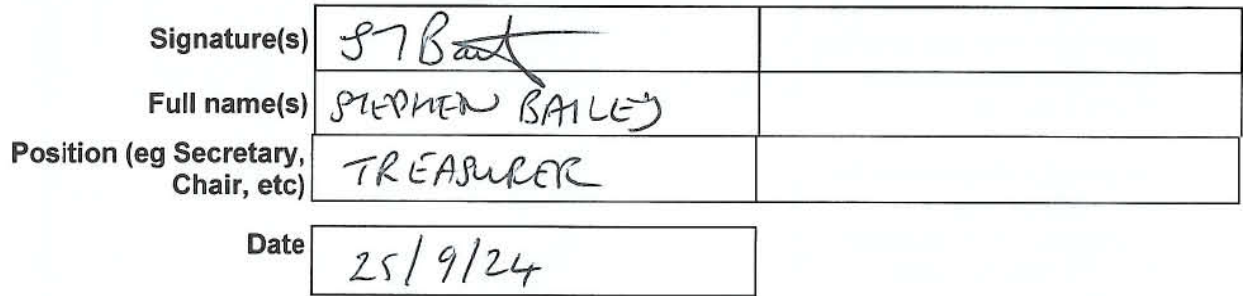 Signature(s)
Full name(s) STEPHEN BAILEY
Position (eg Secretary,
Chair, etc) TREASURER
Date 25/9/24